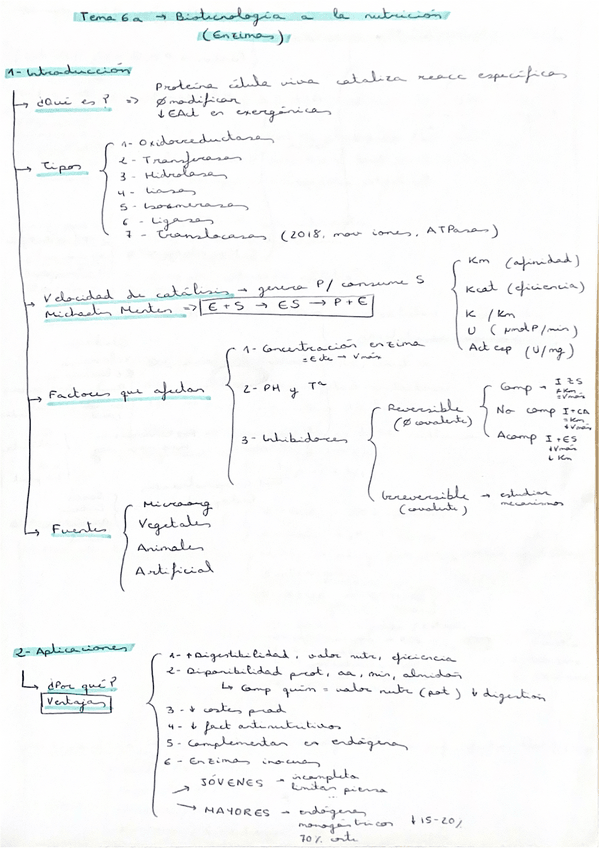 Tema 6a → Biotecnología a la nutrición
(Enzimas)
1- Introducción
¿Qué es? => Proteína célula viva cataliza reacc específicas
Ø modifican
↓ EAct en exergónicas
Tipos
1- Oxidorreductasas
2- Transferasas
3- Hidrolasas
4- Liasas
5- Isomerasas
6- Ligasas
7- Translocasas (2018, mov iones, ATPasas)
Velocidad de catálisis → genera P / consume S
Michaelis Menten => E + S → ES → P + E
Km (afinidad)
Kcat (eficiencia)
K / Km
U (µmol P/min)
Act esp (U/mg)
Factores que afectan
1- Concentración enzima
= E cte → Vmáx
2- PH y Tª
3- Inhibidores
Reversible
(Ø covalente)
Comp → I ≈ S
↑ Km
= Vmáx
No comp I + CA
= Km
↓ Vmáx
Acomp I + ES
↓ Vmáx
↓ Km
Irreversible → estudiar
(covalente) mecanismos
Fuentes
Microorg
Vegetales
Animales
Artificial
2- Aplicaciones
¿Por qué?
Ventajas
1- ↑ Digestibilidad, valor nutr, eficiencia
2- Disponibilidad prot, aa, min, almidón
↳ Comp quím = valor nutr (pot) ↓ digestión
3- ↓ costes prod
4- ↓ fact antinutritivos
5- Complementan en endógenas
6- Enzimas inocuas
→ JÓVENES → incompleta
limitan pienso
→ MAYORES → endógenas
monogástricos ↓ 15-20%
70%